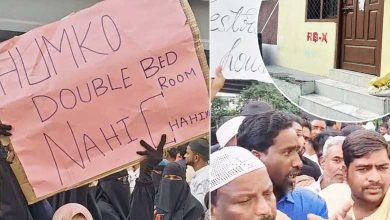 HUMKO
DOUBLE BED
ROOM
NAHI CHAHIY
estr
hou
RB-X